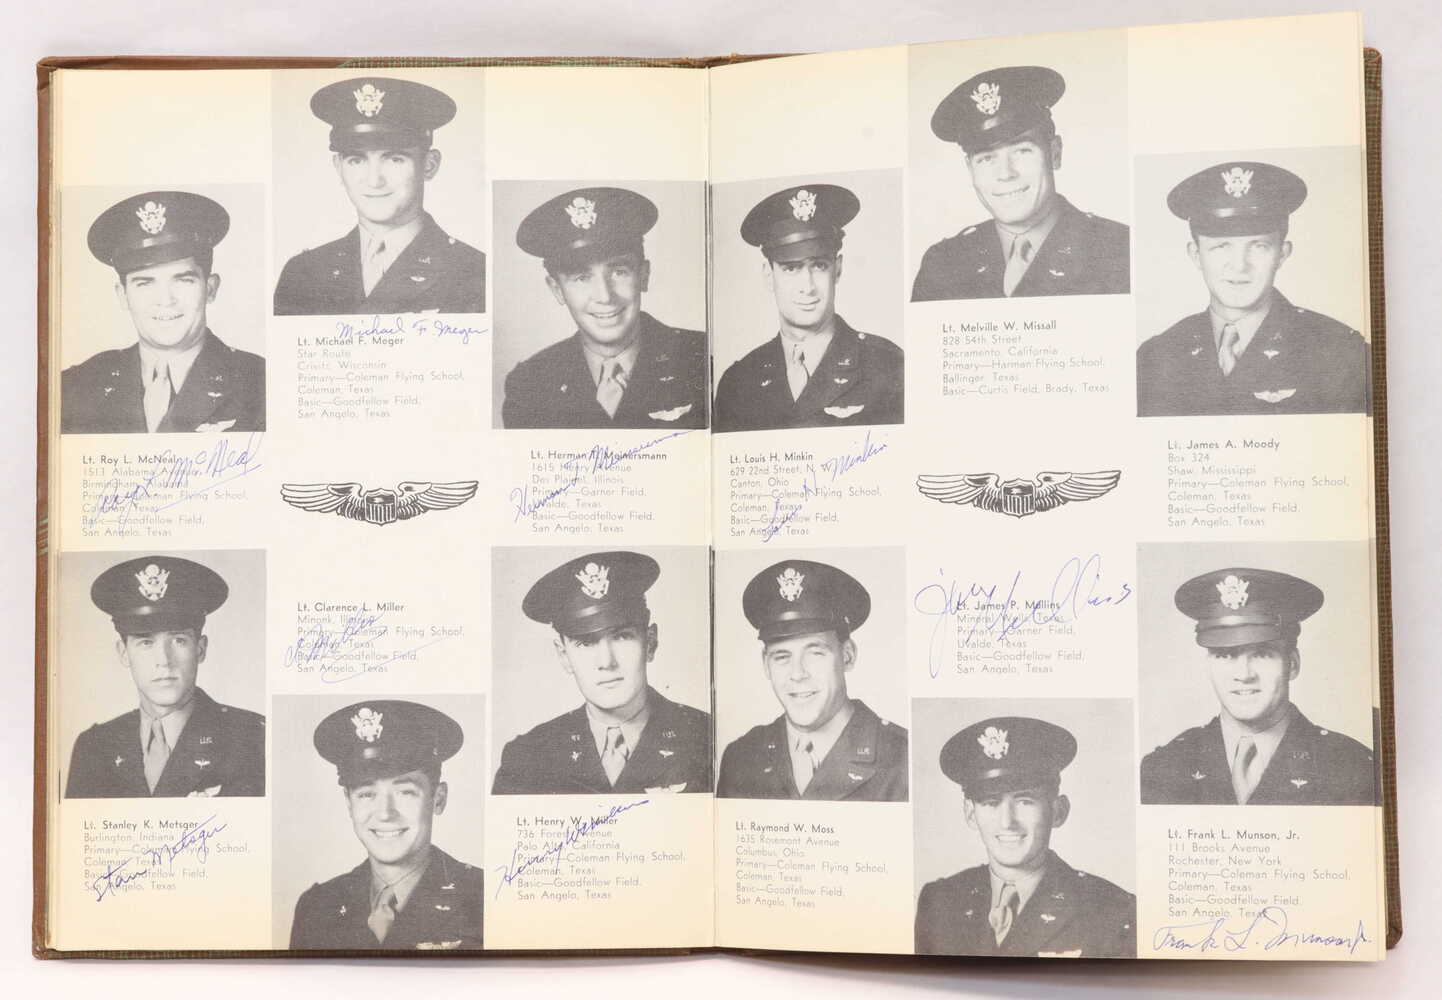 Michael F. Meger
Lt. Michael F. Meger
Star Route
Crivitz, Wisconsin
Primary—Coleman Flying School,
Coleman, Texas
Basic—Goodfellow Field,
San Angelo, Texas
Lt. Roy L. McNeal
1513 Alabama Avenue,
Birmingham, Alabama
Primary—Coleman Flying School,
Coleman, Texas
Basic—Goodfellow Field,
San Angelo, Texas
McNeal
Lt. Herman T. Meinersmann
1615 Henry Avenue
Des Plaines, Illinois
Primary—Garner Field,
Uvalde, Texas
Basic—Goodfellow Field,
San Angelo, Texas
Lt. Clarence L. Miller
Minonk, Illinois
Primary—Coleman Flying School,
Coleman, Texas
Basic—Goodfellow Field,
San Angelo, Texas
Lt. Stanley K. Metsger
Burlington, Indiana
Primary—Coleman Flying School,
Coleman, Texas
Basic—Goodfellow Field,
San Angelo, Texas
Stan Metsger
Lt. Henry W. Miller
736 Forest Avenue
Palo Alto, California
Primary—Coleman Flying School,
Coleman, Texas
Basic—Goodfellow Field,
San Angelo, Texas
Lt. Louis H. Minkin
629 22nd Street, N. W.
Canton, Ohio
Primary—Coleman Flying School,
Coleman, Texas
Basic—Goodfellow Field,
San Angelo, Texas
Lou H. Minkin
Lt. Melville W. Missall
828 54th Street
Sacramento, California
Primary—Harman Flying School,
Ballinger, Texas
Basic—Curtis Field, Brady, Texas
Lt. James A. Moody
Box 324
Shaw, Mississippi
Primary—Coleman Flying School,
Coleman, Texas
Basic—Goodfellow Field,
San Angelo, Texas
Lt. James P. Mollins
Mineral Wells, Texas
Primary—Garner Field,
Uvalde, Texas
Basic—Goodfellow Field,
San Angelo, Texas
Lt. Raymond W. Moss
1635 Rosemont Avenue
Columbus, Ohio
Primary—Coleman Flying School,
Coleman, Texas
Basic—Goodfellow Field,
San Angelo, Texas
Lt. Frank L. Munson, Jr.
111 Brooks Avenue
Rochester, New York
Primary—Coleman Flying School,
Coleman, Texas
Basic—Goodfellow Field,
San Angelo, Texas
Frank L. Munson Jr.